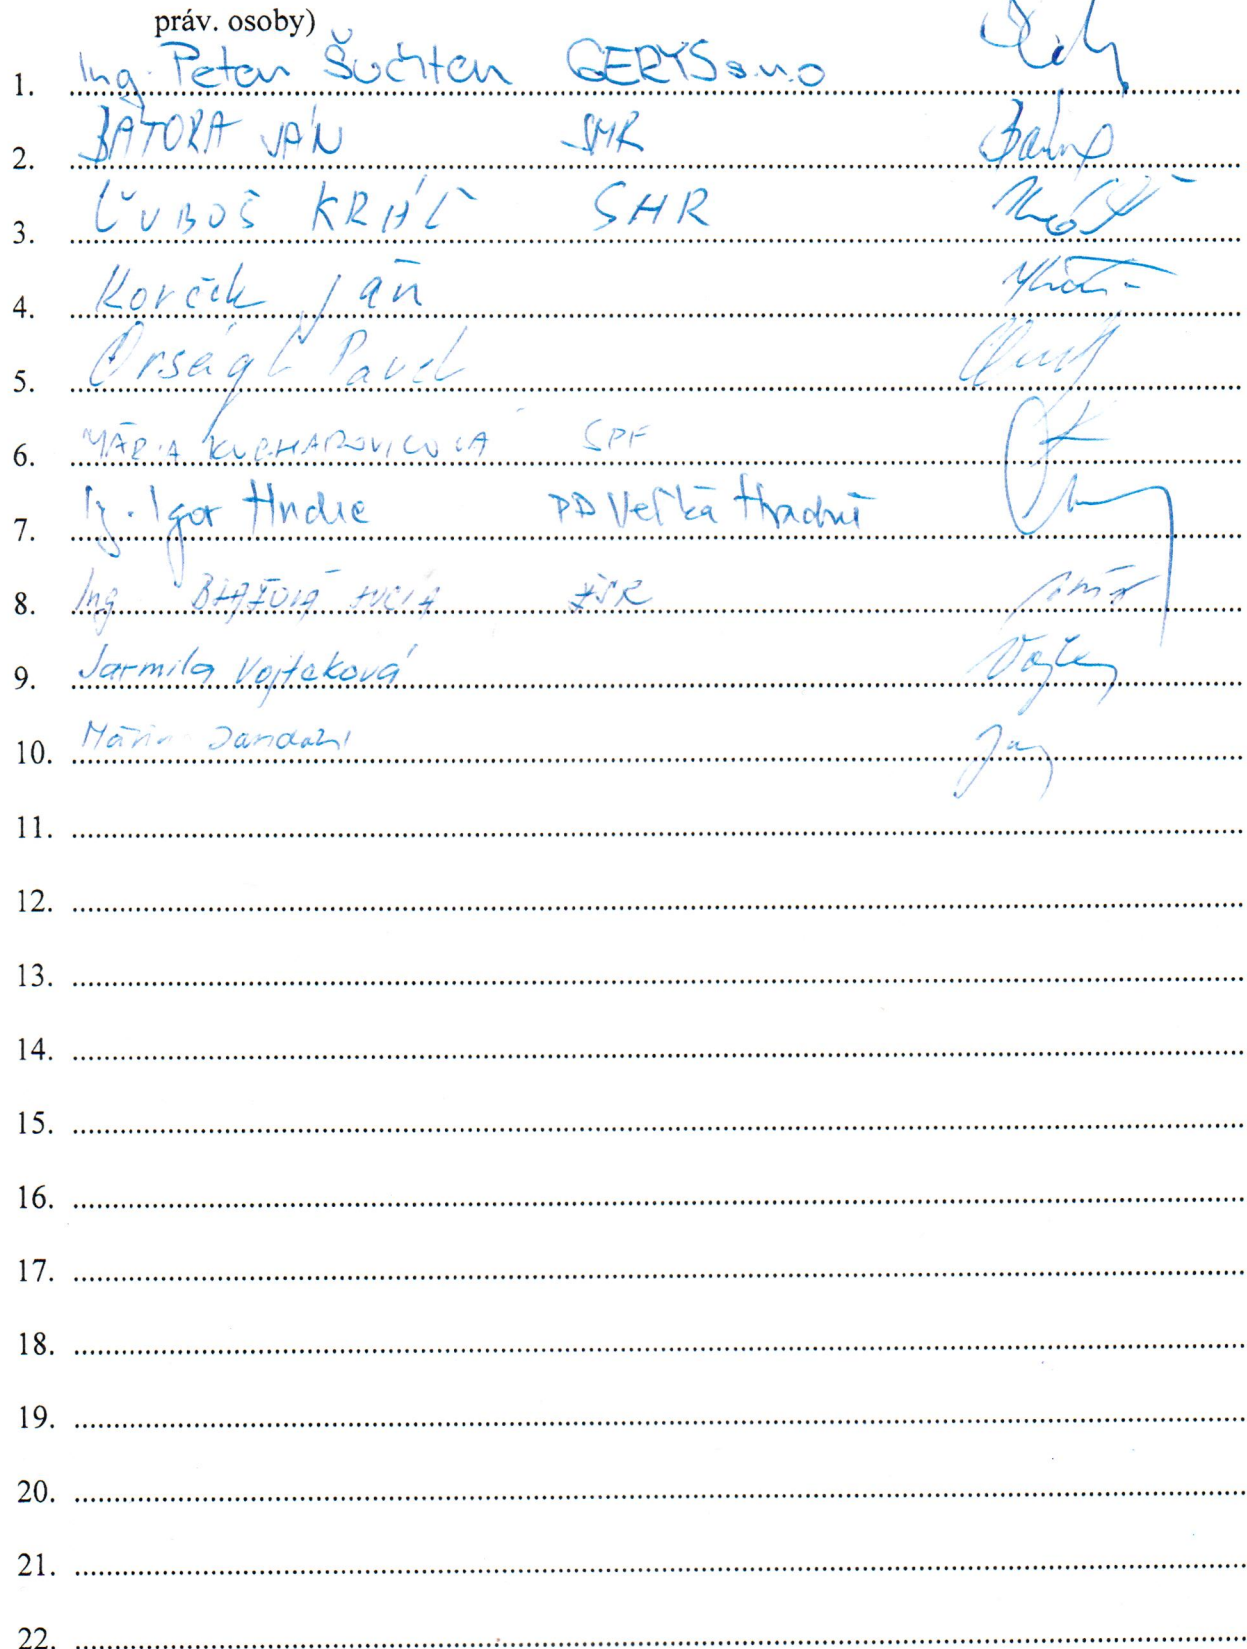 práv. osoby)
1. Ing. Peter Šuchter GERYS s.r.o
2. BÁTORA JÁN SHR
3. ĽUBOŠ KRÁĽ SHR
4. Korčék Ján
5. Orságh Pavel
6. MÁRIA KUCHAROVICOVÁ SPF
7. Ing. Igor Hudec PD Veľká Hradná
8. Ing BLAŽOVÁ LUCIA ŽSR
9. Jarmila Vojteková
10. Mária
11.
12.
13.
14.
15.
16.
17.
18.
19.
20.
21.
22.